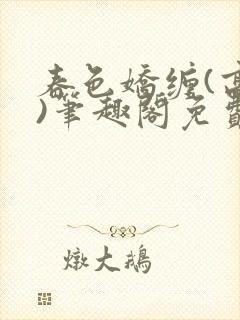 春色嬌纏(高
)筆趣閣免費
燉大鵝